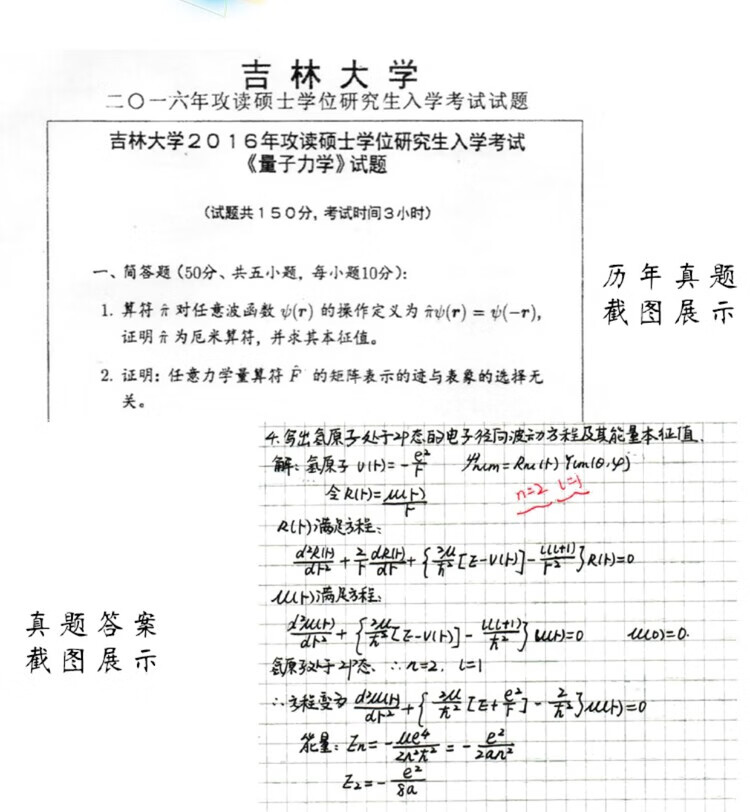 吉林大学
二〇一六年攻读硕士学位研究生入学考试试题
吉林大学2016年攻读硕士学位研究生入学考试
《量子力学》试题
(试题共150分,考试时间3小时)
一、简答题(50分、共五小题,每小题10分):
1. 算符 π̂ 对任意波函数 ψ(r) 的操作定义为 π̂ψ(r) = ψ(−r),
证明 π̂ 为厄米算符,并求其本征值。
2. 证明:任意力学量算符 F̂ 的矩阵表示的迹与表象的选择无
关。
历年真题
截图展示
4.写出氢原子处于2P态的电子径向波动方程及其能量本征值.
解:氢原子 V(r)=-e²/r ψnlm=Rnl(r)Ylm(θ,φ)
令R(r)=u(r)/r n=2 l=1
R(r)满足方程:
d²R(r)/dr²+2/r dR(r)/dr+{2μ/ħ²[E-V(r)]-l(l+1)/r²}R(r)=0
u(r)满足方程:
d²u(r)/dr²+{2μ/ħ²[E-V(r)]-l(l+1)/ħ²}u(r)=0 u(0)=0.
氢原子处于2P态. ∴n=2. l=1
∴方程变为 d²u(r)/dr²+{2μ/ħ²[E+e²/r]-2/ħ²}u(r)=0
能量:En=-μe⁴/2n²ħ²=-e²/2an²
E₂=-e²/8a
真题答案
截图展示